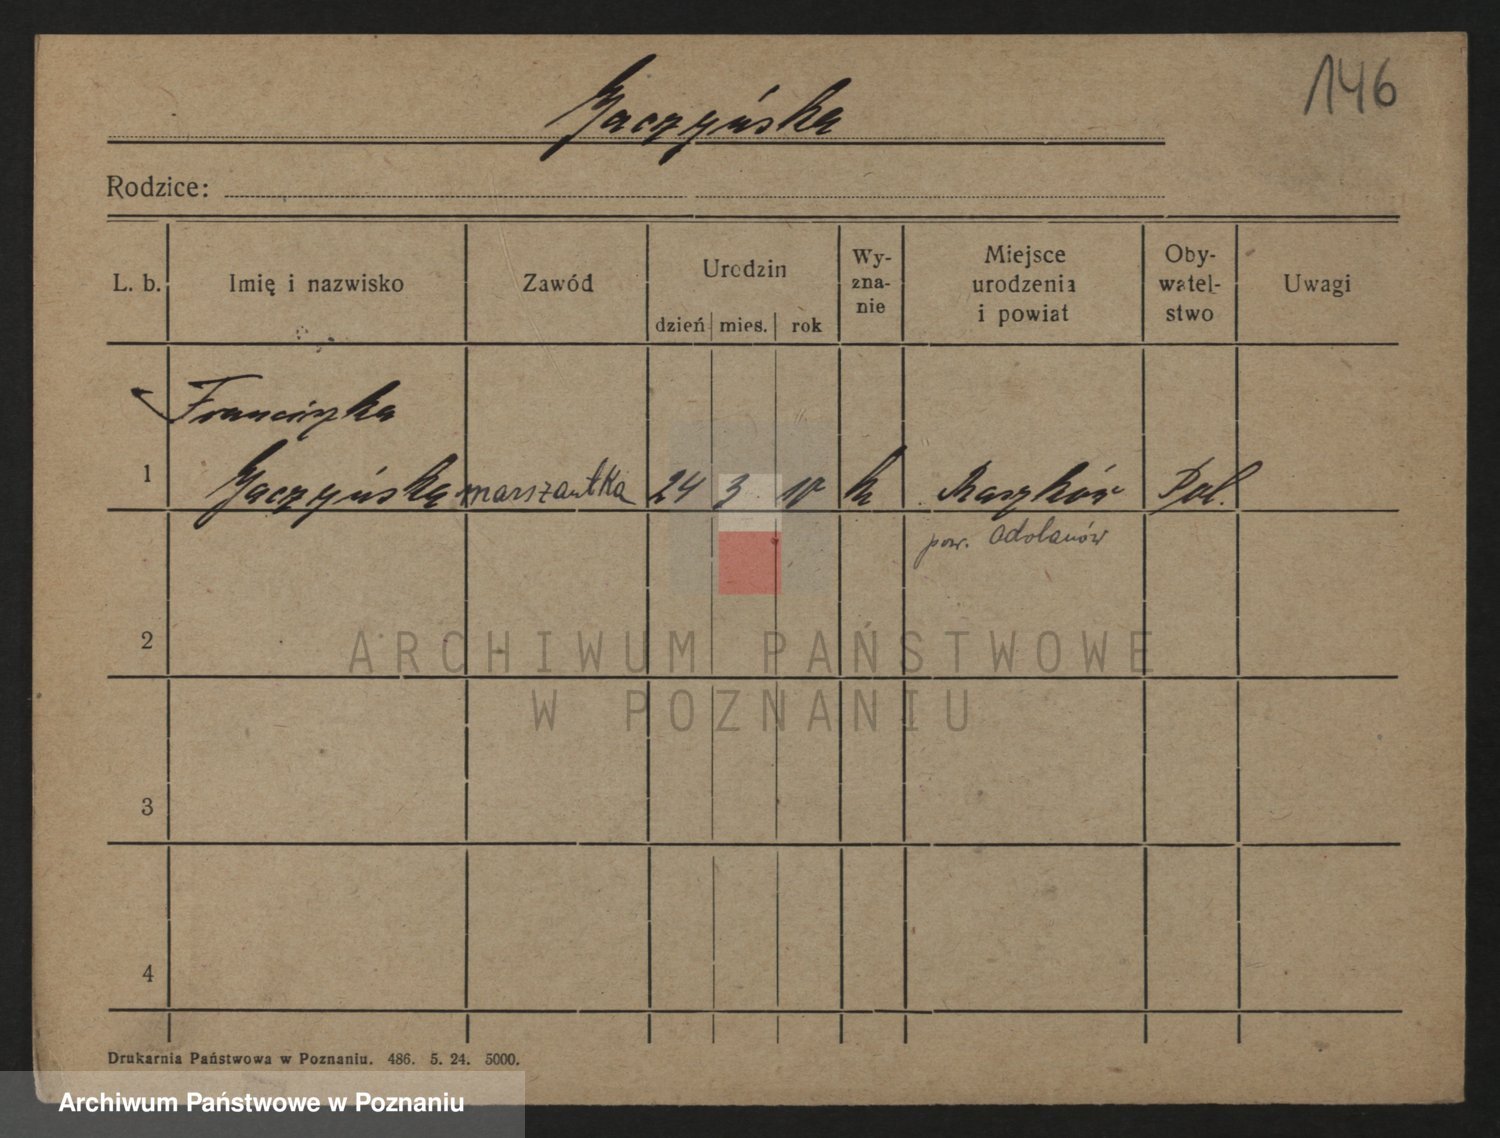 146
Gaczyńska
Rodzice:
L. b.
Imię i nazwisko
Zawód
Urodzin
dzień
mies.
rok
Wy-
zna-
nie
Miejsce
urodzenia
i powiat
Oby-
watel-
stwo
Uwagi
Franciszka
1
Gaczyńska
24
3
k
Raszków
Pol.
pow. Adolanów
2
3
4
ARCHIWUM PAŃSTWOWE
W POZNANIU
Drukarnia Państwowa w Poznaniu. 486. 5. 24. 5000.
Archiwum Państwowe w Poznaniu